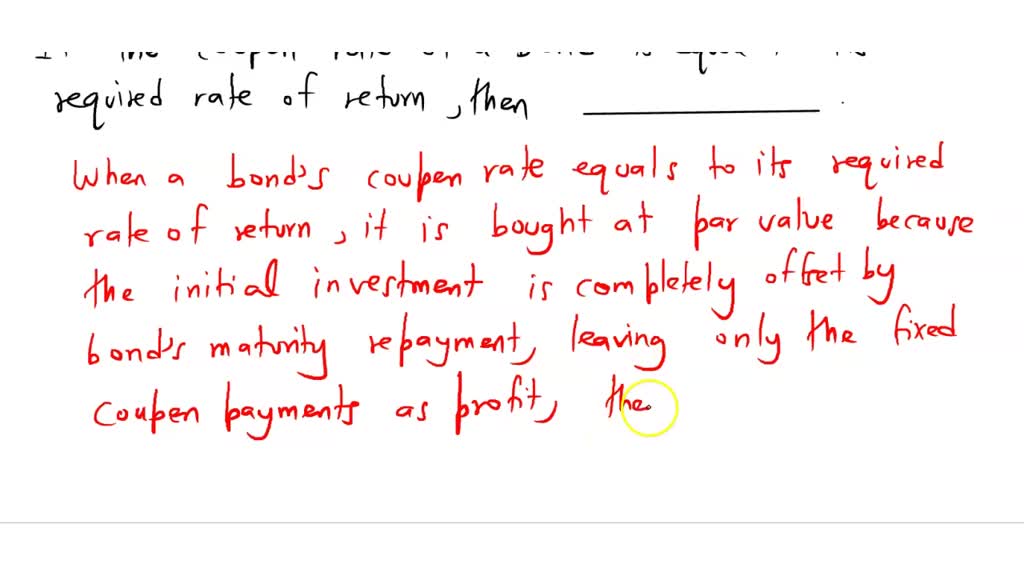 required rate of return, then ________ .
When a bond's coupen rate equals to its required
rate of return, it is bought at par value because
the initial investment is completely offset by
bond's maturity repayment, leaving only the fixed
coupen payments as profit, the